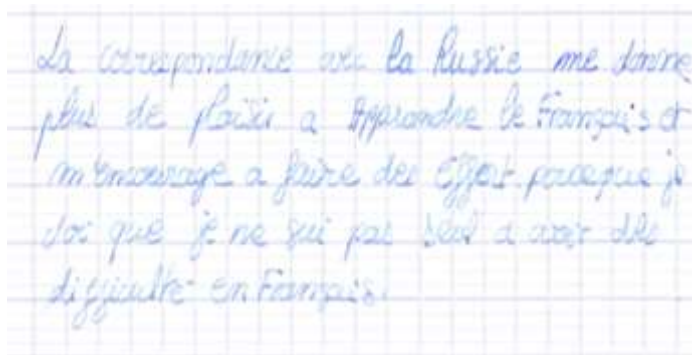 La correspondance avec la Russie me donne
plus de plaisir a Apprandre le Français et
m'emourage a faire des effort parceque je
voi que je ne sui pas seul a avoir des
difficulté en Français.